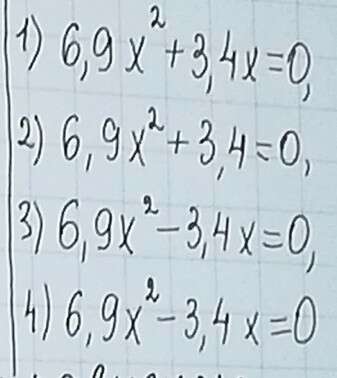 1) 6,9x² + 3,4x = 0,
2) 6,9x² + 3,4 = 0,
3) 6,9x² - 3,4x = 0,
4) 6,9x² - 3,4x = 0